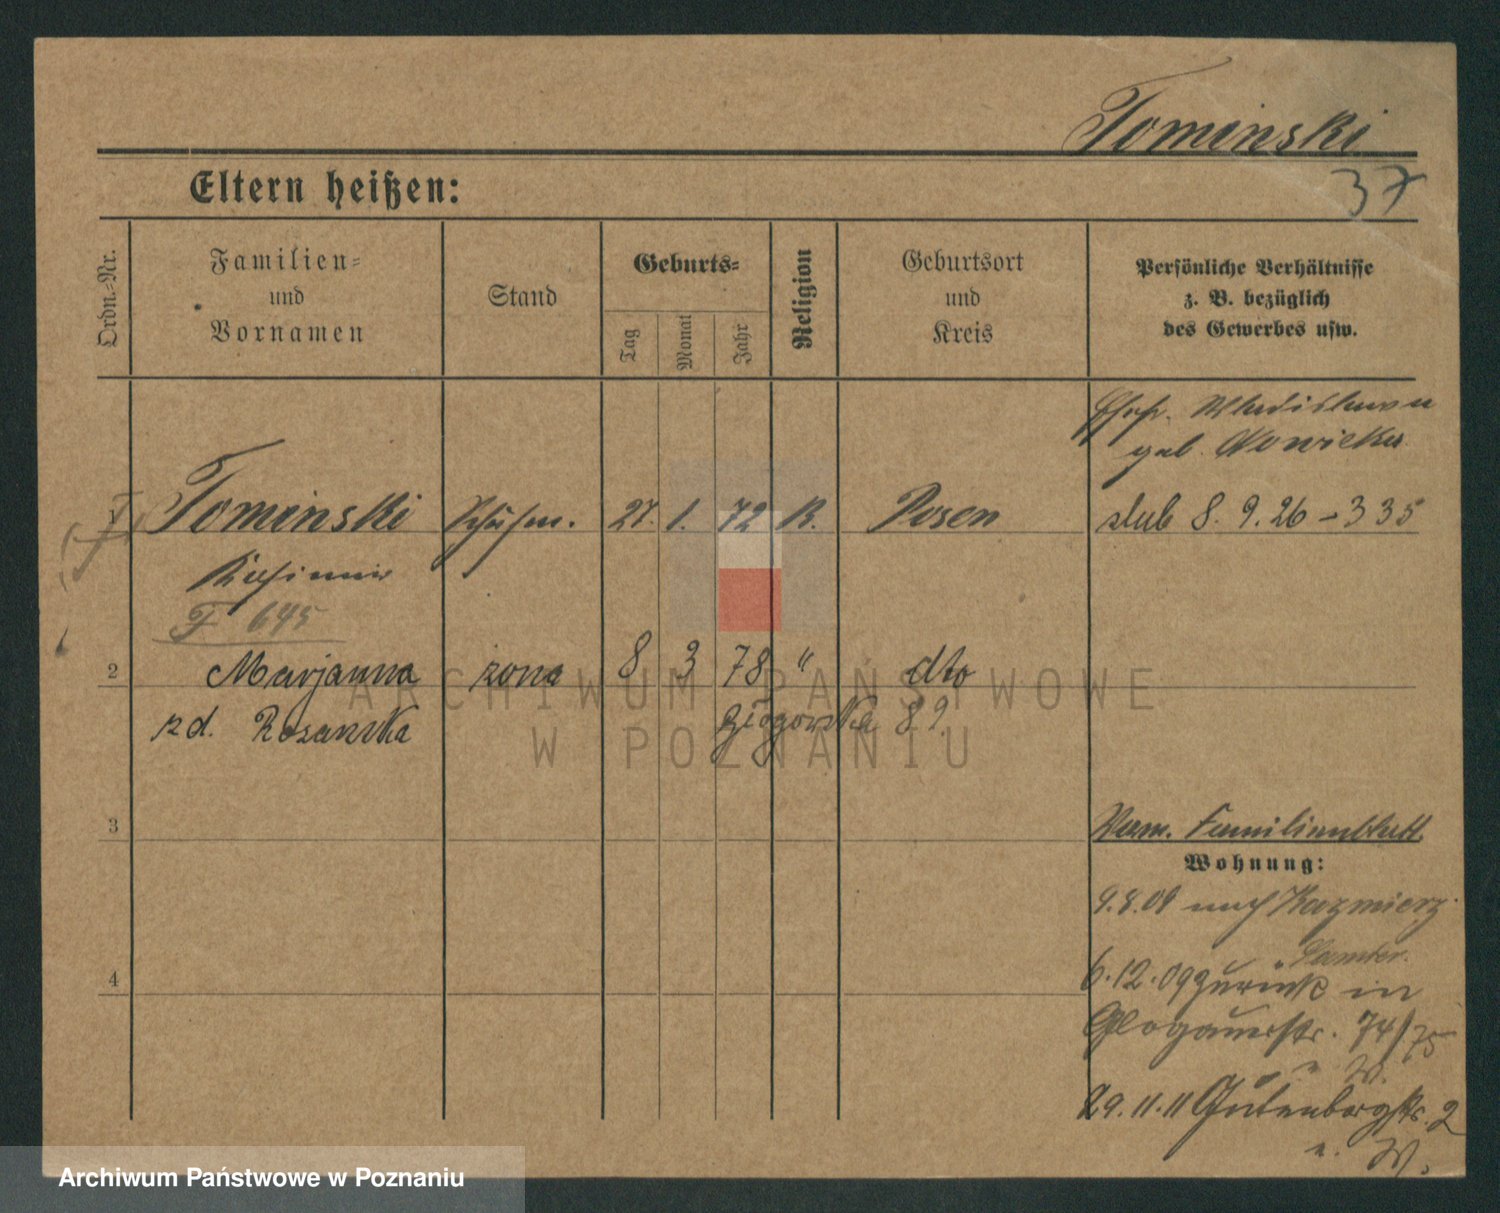 Tominski
37
Eltern heißen:
Ordn.-Nr.
Familien=
und
Vornamen
Stand
Geburts=
Tag
Monat
Jahr
Religion
Geburtsort
und
Kreis
Persönliche Verhältnisse
z. B. bezüglich
des Gewerbes usw.
Wladislawa
geb. Nowicka
1 Tominski Schuhm. 27. 1. 72 K. Posen slub 8. 9. 26 - 335
Kasimir
F 645
2 Marjanna zona 8 3 78 " dto
zd. Rozanska Głogowska 89.
3
Vom. Familienblatt.
Wohnung:
9.8.09 nach Kazmierz
Samter.
4
6.12.09 zurück in
Glogauerstr. 74/75
n. W.
29.11.11 Gutenbergstr. 2
n. W.
ARCHIWUM PAŃSTWOWE
W POZNANIU
Archiwum Państwowe w Poznaniu